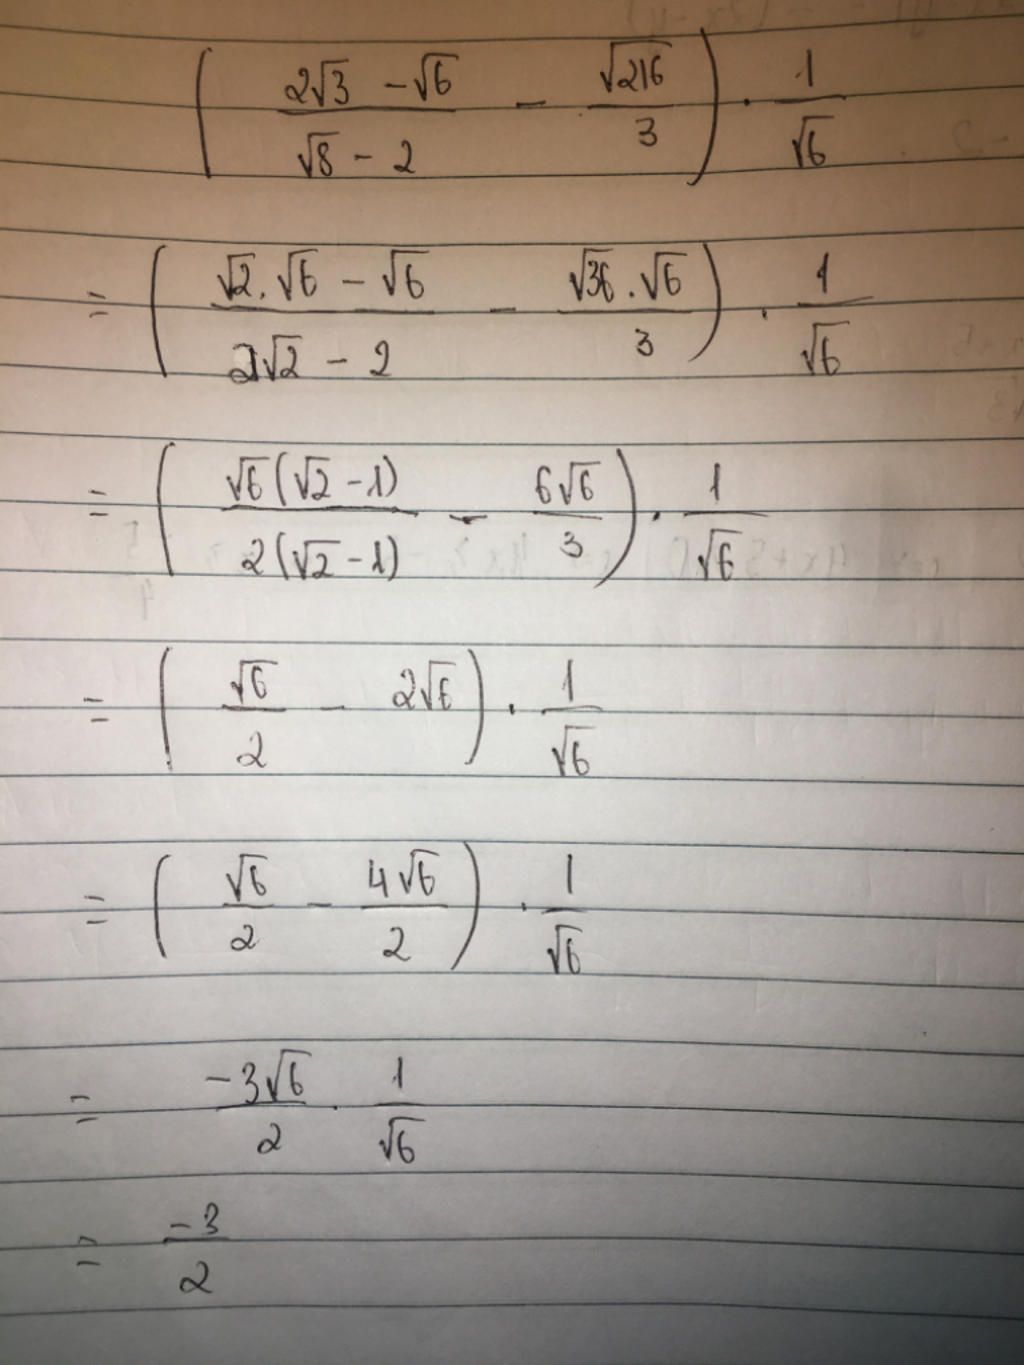 ( (2√3 - √6)/(√8 - 2) - √216/3 ) · 1/√6
= ( (√2.√6 - √6)/(2√2 - 2) - (√36.√6)/3 ) · 1/√6
= ( √6(√2-1)/2(√2-1) - 6√6/3 ) · 1/√6
= ( √6/2 - 2√6 ) · 1/√6
= ( √6/2 - 4√6/2 ) · 1/√6
= -3√6/2 · 1/√6
= -3/2